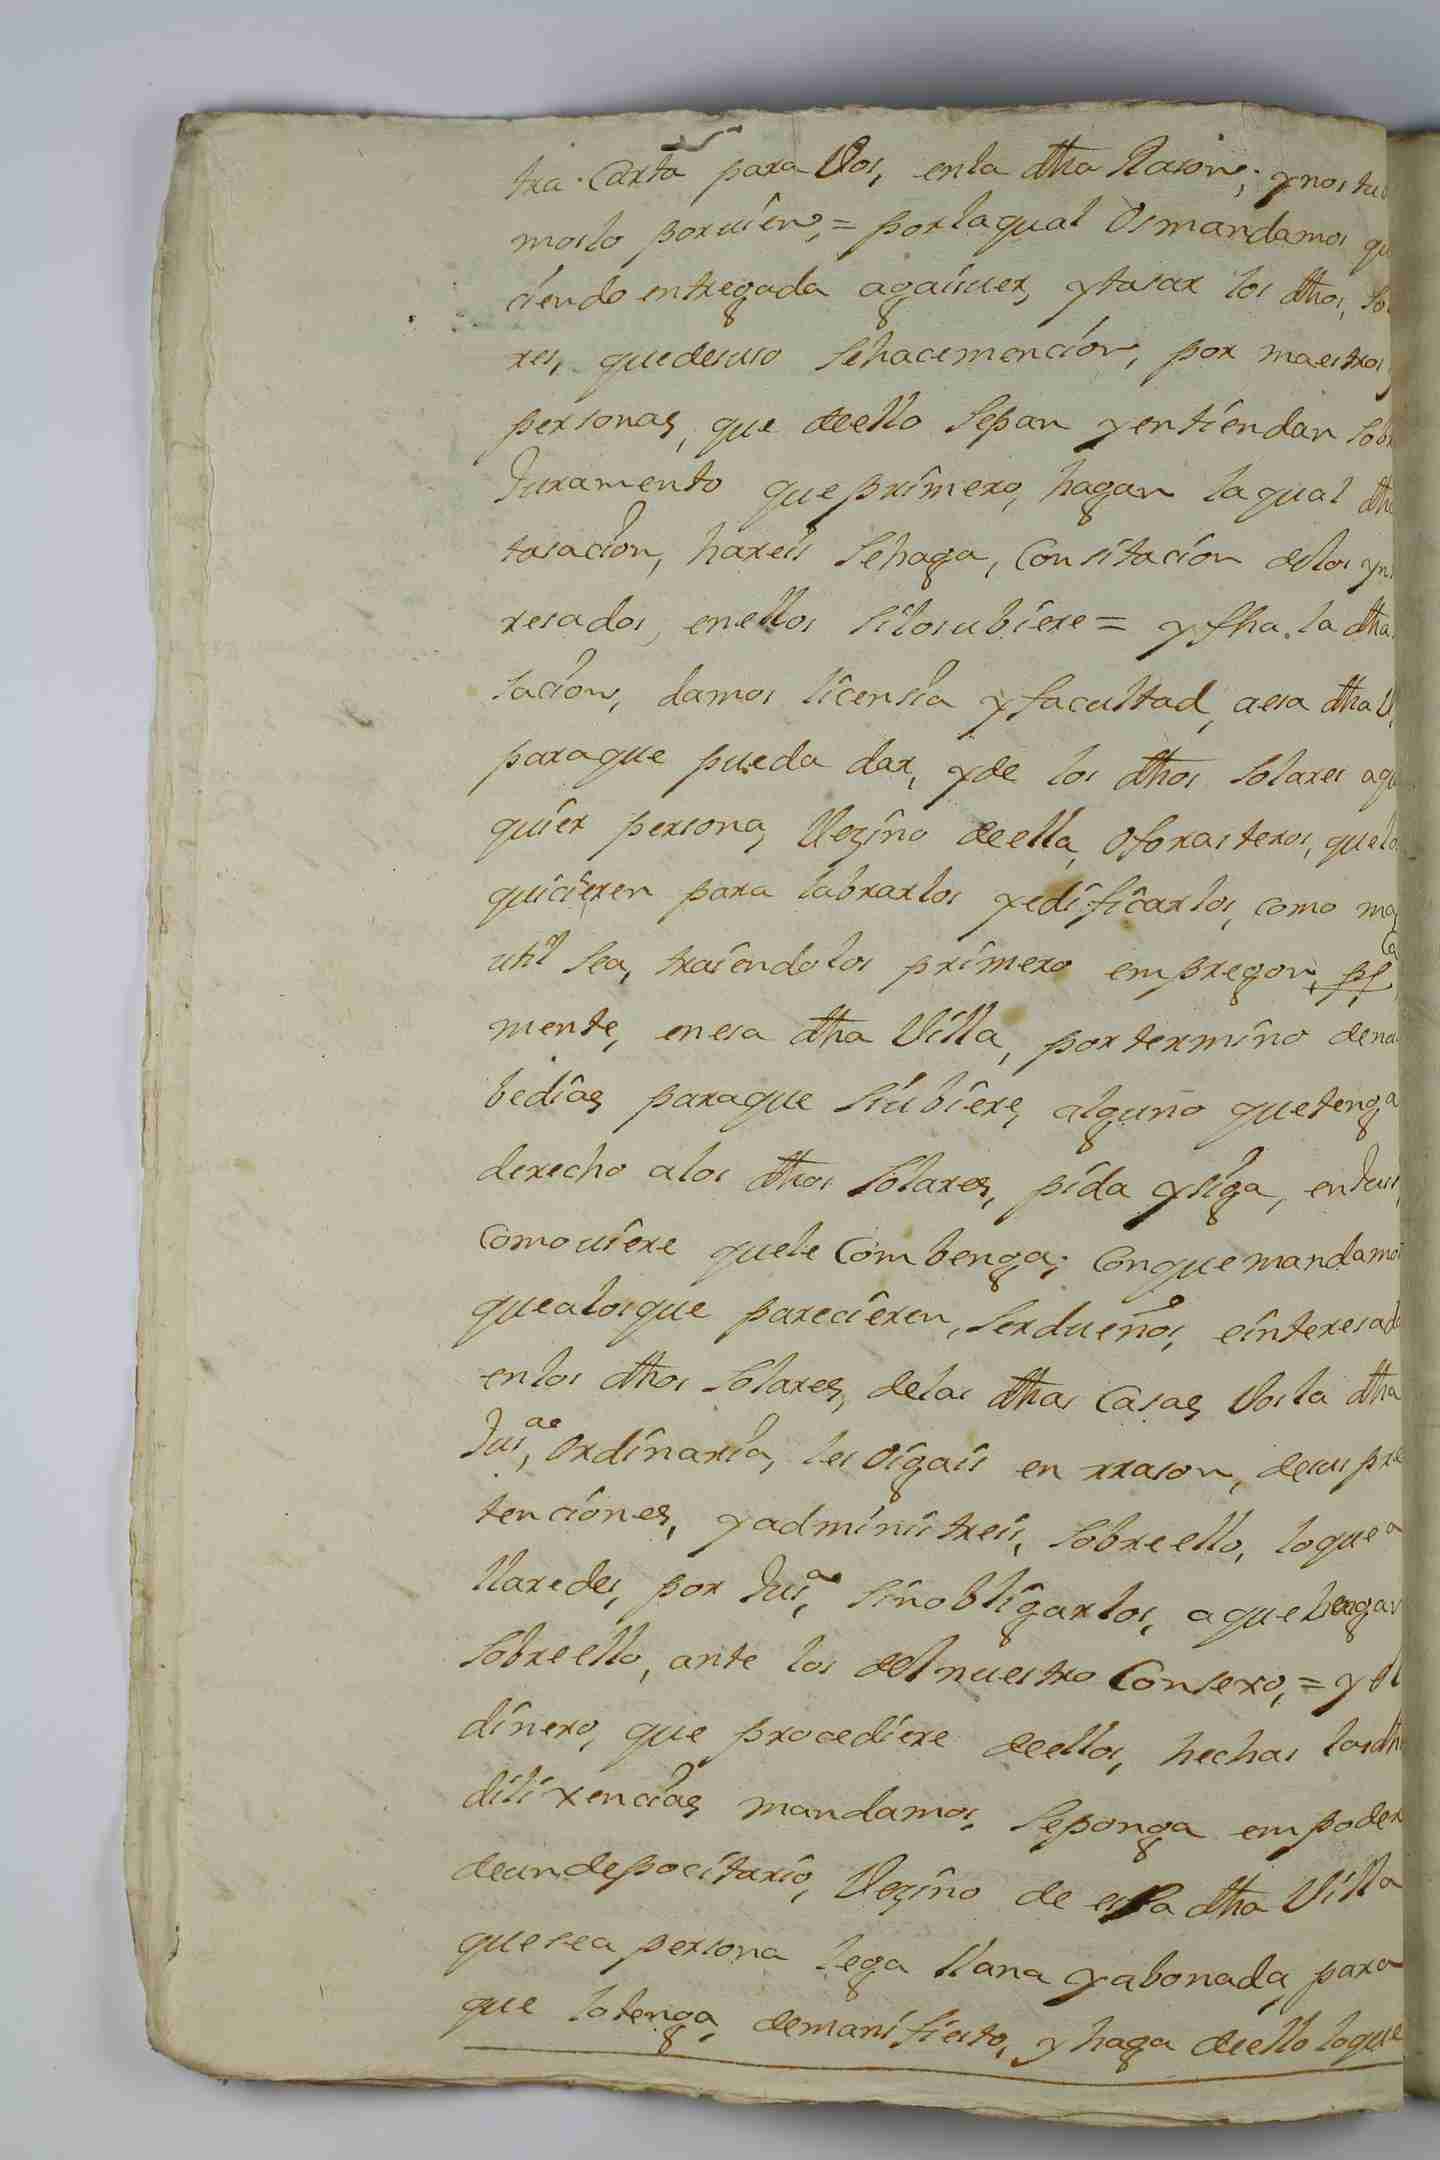 tra Carta para Vos, en la dha Rason, y nos tu
moslo por uien, = por la qual Os mandamos qu
ciendo entregada agais uer, y tasar los dhos, So
res, que desuso Sehacemencion, por maestros
personas, que deello Sepan y entiendan sob
Juramento que primero, hagan la qual dh
tasacion, hareis Sehaga, Con sitacion delos yn
resados, en ellos Silosubiere = y fha. la dha
sacion, damos licensia y facultad, a esa dha V
paraque pueda dar, y de los dhos Solares aqu
quier persona, Vezino deella, O forasteros, quelo
quicieren para labrarlos y edificarlos, como ma
util Sea, traiendolos primero em pregon, pp
mente, en esa dha Villa, por termino de nu
bedias paraque Siubiere, alguno que tenga
derecho a los dhos Solares, pida y siga, en Jus
Como uiere que le Combenga; Conque mandamos
que alosque parecieren, Ser dueños, e interesad
en los dhos Solares, delas dhas Casas Vos la dha
Jusᵃᵉ, Ordinaria, les Oigais en rrason, desus pre
tenciones, y administreis, Sobre ello, loque a
llaredes, por Jusᵃᵉ, Sinobligarlos, a que bengan
Sobre ello, ante los del nuestro Consexo, = y el
dinero, que procediere deellos, hechas las dh
dilixencias mandamos, Seponga em poder
deun depocitario, Vezino de esa dha Villa
que sea persona lega llana y abonada, para
que lo tenga, demanifiesto, y haga deello loque